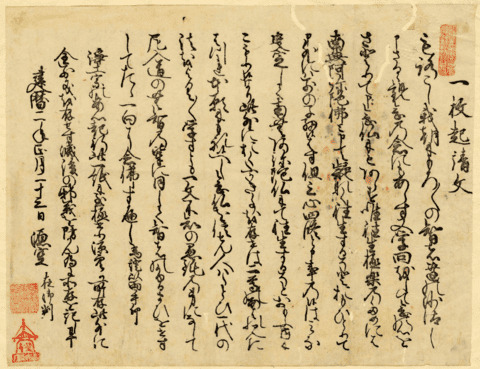 一枚起請文
もろこし我朝にもろ〱の智者達の沙汰し
申さるゝ観念の念にもあらす又学問をして念の心を
さとりて申念仏にもあらすたゝ往生極楽のためには
南無阿弥陀佛と申て疑なく往生するそと思ひとりて
申外には別の子細候はす但三心四修なと申事の候はみな
决定して南無阿弥陀仏にて往生するそとおもふ内に
こもり候也此外におくふかき事を存せは二尊の御あはれみに
はつれ本願にもれ候へし念仏を信せん人はたとひ一代の
法を能〱学すとも一文不知の愚鈍の身になして
尼入道の無智の輩に同して智者のふるまひをせす
してたゝ一向に念佛すへし 為證以両手印
浄土宗の安心起行此一紙に至極せり源空か所存此外に
全別義を不存滅後の邪義を防かん為に所存を記し畢
建暦二年正月二十三日 源空 在御判